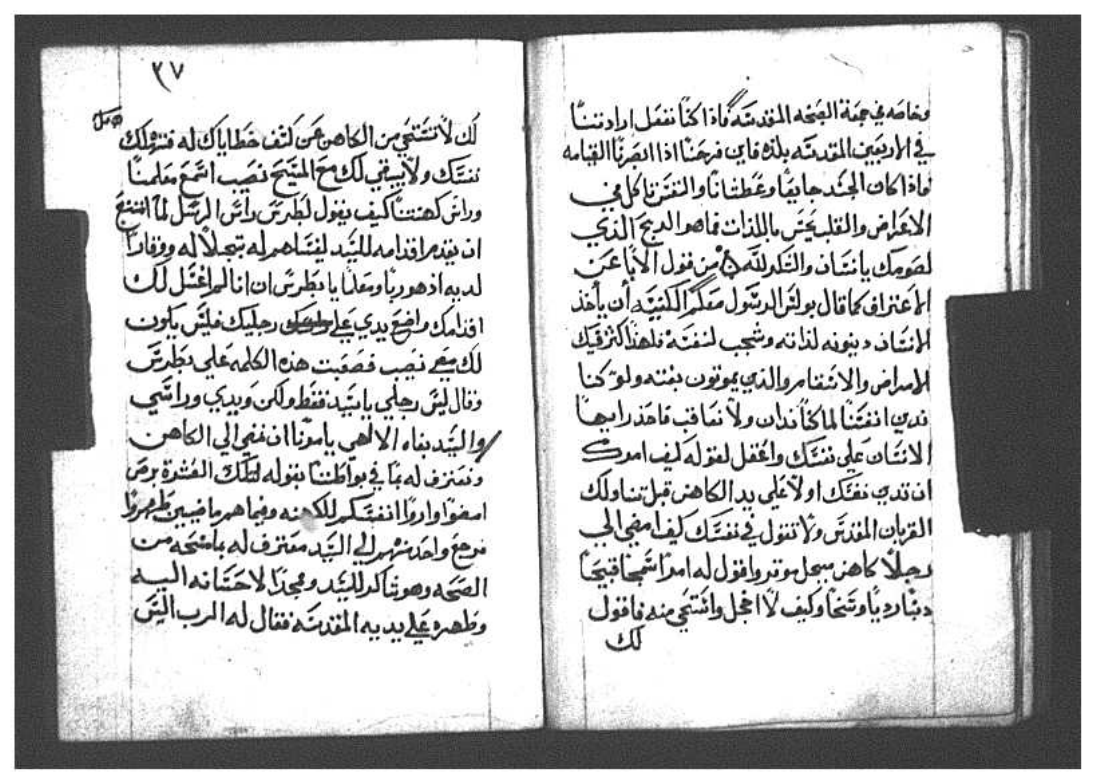 وخاصه في جمعة الصحه المقدسه فاذا كنا نفعل ارادتنا
في الاربعين المقدسه بلذه فاين فرحنا اذا ابصرنا القيامه
واذا كان الجسد جايعًا وعطشانًا والنفس تاكل في
الاعراض والقلب يحس باللذات فما هو الربح الذي
لصومك يا انسان والشكر لله من قول الابا عن
الاعتراف كما قال بولس الرسول معلم الكنيسه أن يأخذ
الانسان دينونه لذاته وشجب لنفسه فلهذا كثر فيك
الامراض والاسقام والذي يموتون بغته ولو كنا
ندين انفسنا لما كنا ندان ولا نعاقب فاحذر ايها
الانسان على نفسك واعقل لقوله كيف امرك
ان تدين نفسك اولاً على يد الكاهن قبل تناولك
القربان المقدس ولا تقول في نفسك كيف امضي الي
رجلاً كاهن مبجل موقر واقول له امرًا سمجًا قبيحًا
دنسًا رديًا وسخًا وكيف لا اخجل واستحي منه فاقول
لك
٣٧
لك لا تستحي من الكاهن عن كشف خطاياك له فتهلك
نفسك ولا يبقي لك مع المسيح نصيب اسمع معلمنا
وراس كهنتنا كيف يقول لبطرس راس الرسل لما امتنع
ان يقدم اقدامه للسيد ليغسلهم له تبجلاً له ووقارًا
لديه اذ هو ربًا ومعلمًا يا بطرس ان انا لم اغسل لك
اقدامك واضع يدي علي رجليك فليس يكون
لك معي نصيب فصعبت هذه الكلمه علي بطرس
وقال ليس رجلي يا سيد فقط ولكن ويدي وراسي
والسيد بفاه الالهي يامرنا ان نمضي الي الكاهن
ونعترف له بما في بواطننا بقوله لتلك العشرة برص
امضوا واروا انفسكم للكهنه وفيما هم ماضيين طهروا
فرجع واحد منهم الي السيد معترف له بما منحه من
الصحه وهو شاكر للسيد وممجدًا لاحسانه اليه
وطهره علي يديه المقدسه فقال له الرب اليس